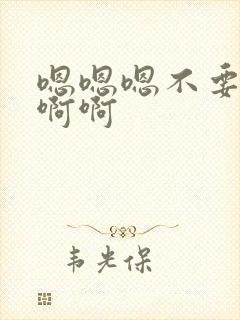 嗯嗯嗯不要
啊啊
韦光保